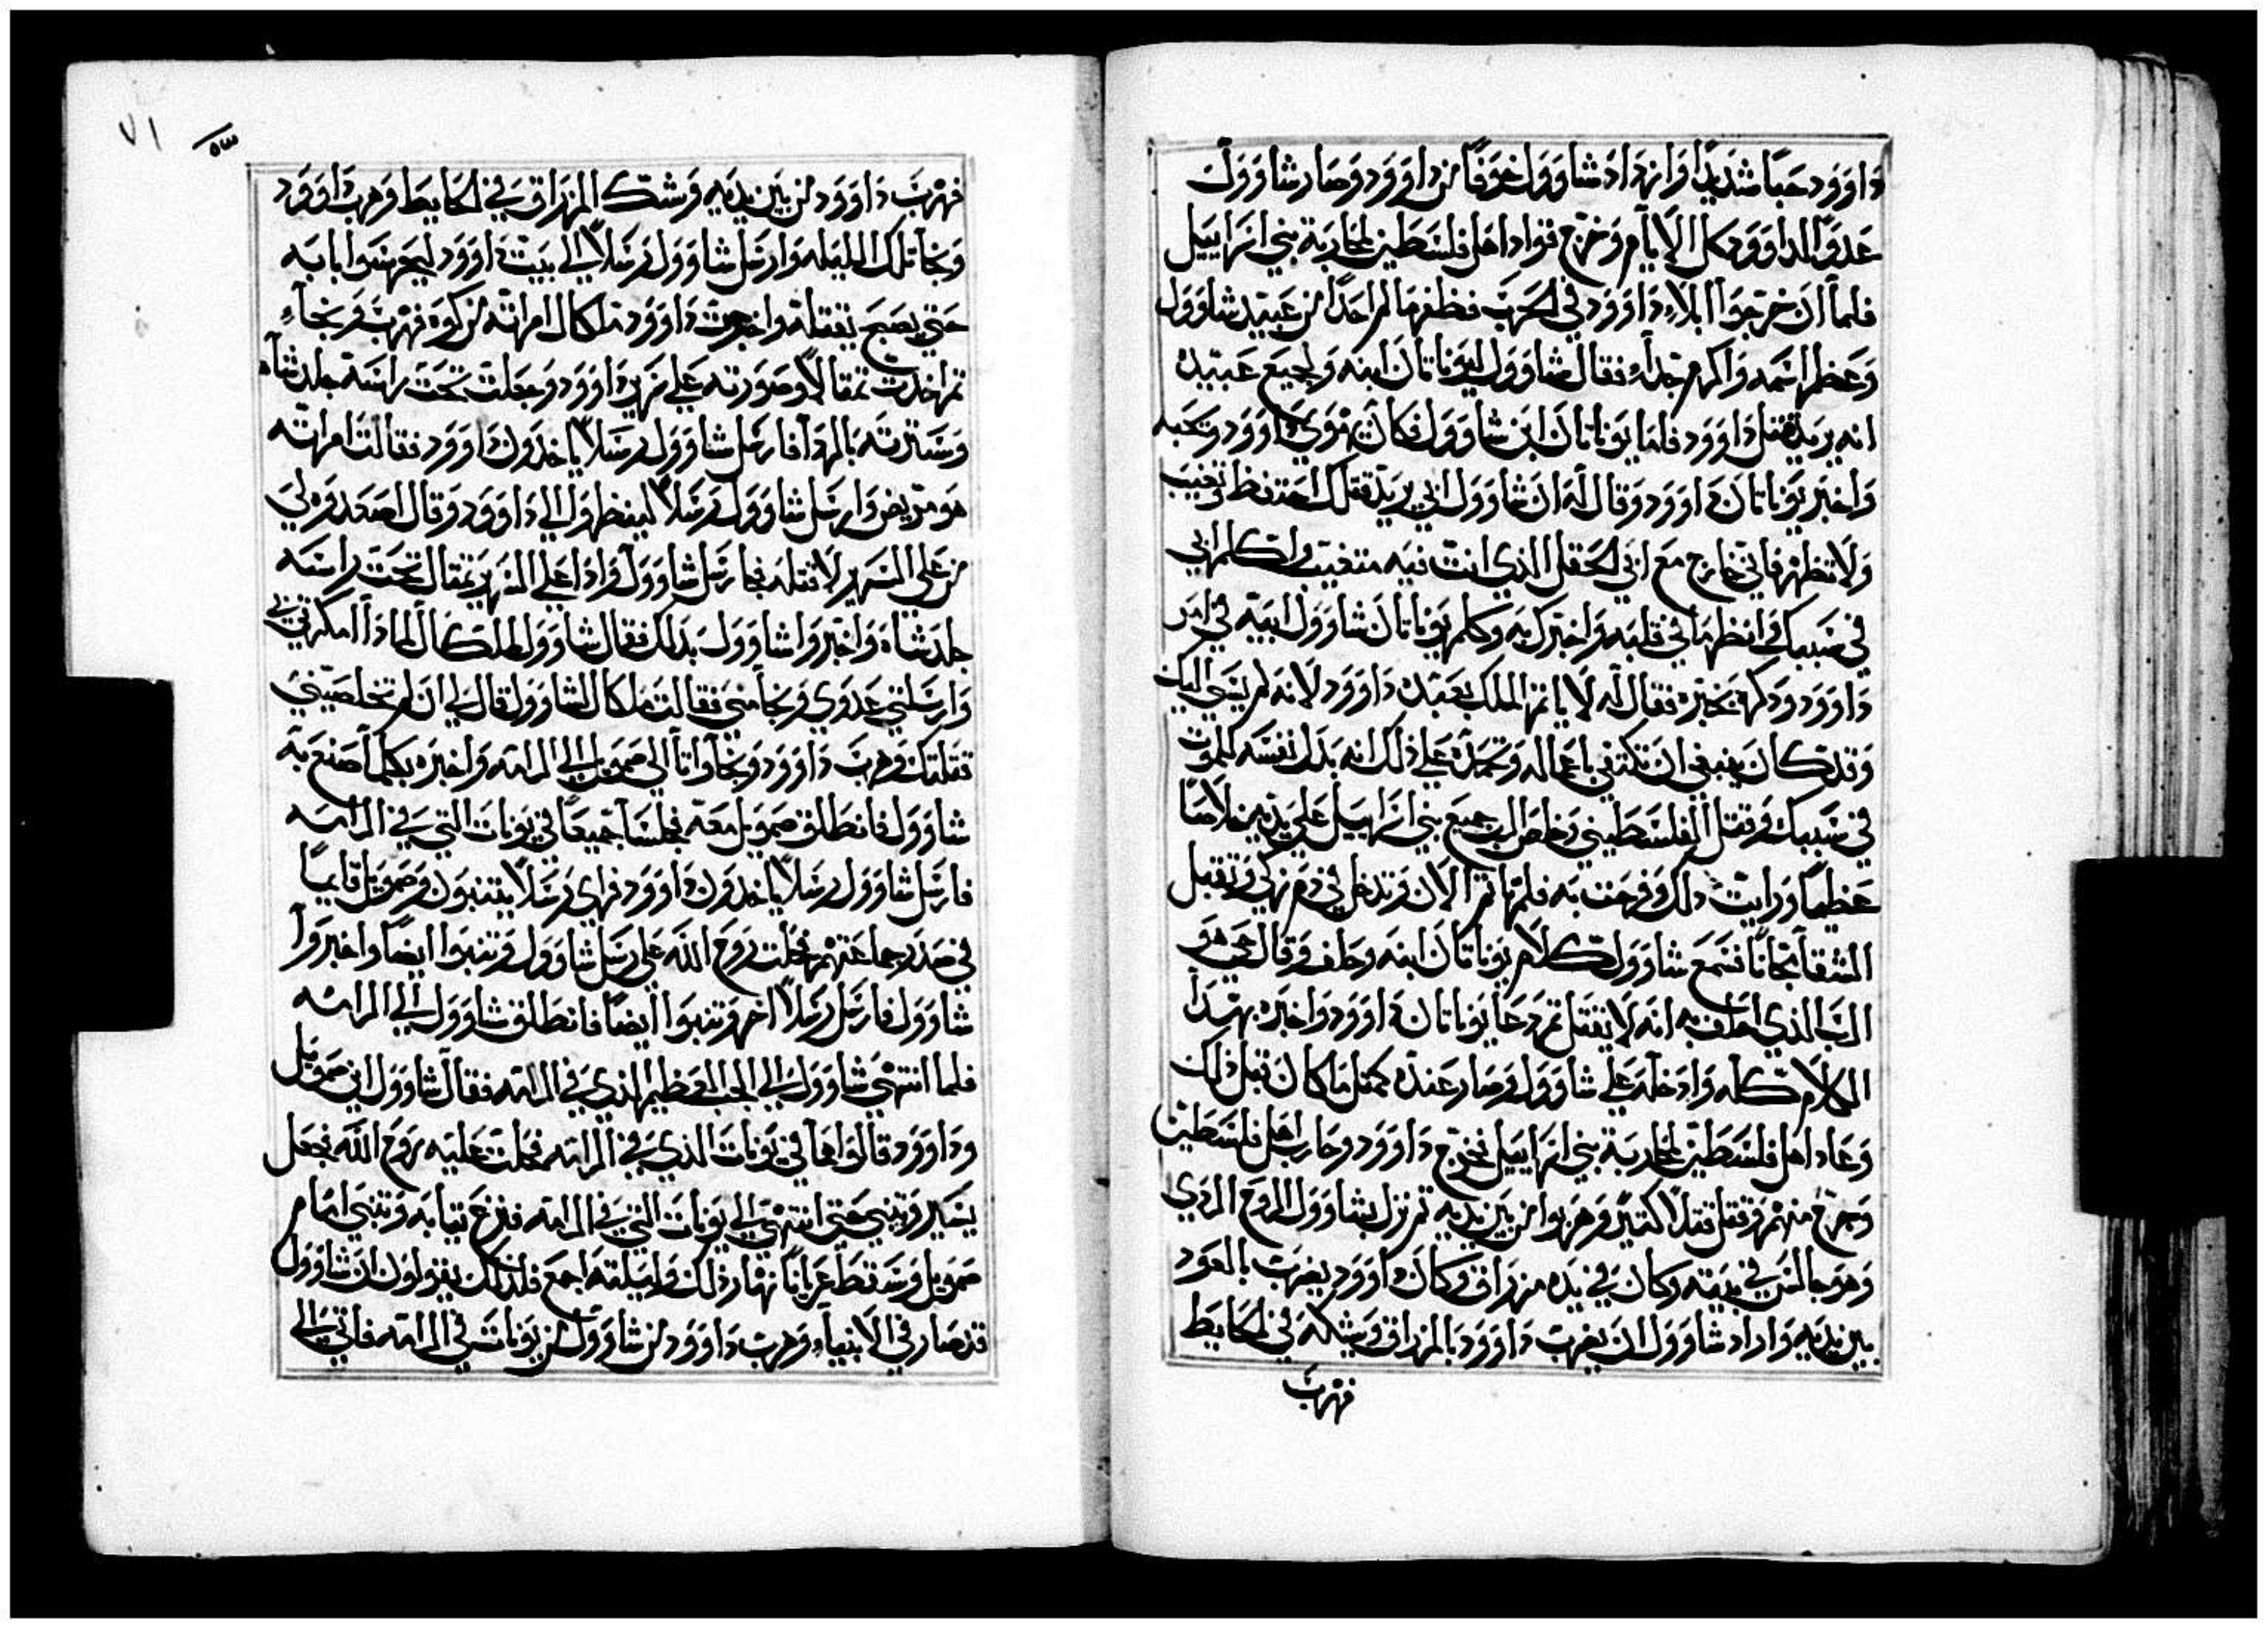 داوود حبا شديدا وازداد شاوول خوفا من داوود وصار شاوول
عدوا لداوود كل الايام وخرج قواد اهل فلسطين لمحاربة بني اسراييل
فلما ان خرجوا ابلاء داوود في الحرب فظفر ما لم احدا من عبيد شاوول
وعظم اسمه واكرم جدا فقال شاوول ليوناتان ابنه ولجميع عبيده
انه يريد قتل داوود فاما يوناتان ابن شاوول فكان يهوي داوود وتحبه
واخبر يوناتان داوود وقال له ان شاوول ابي يريد قتلك احتفظ وتغيب
ولا تظهر فاني خارج مع ابي الحقل الذي انت فيه متغيب واكلم ابي
في سببك فانظر ما في قلبه واخبرك به وكلم يوناتان شاوول ابيه في امر
داوود وذكره بخيره فقال له لا ياثم الملك بعبده داوود لانه لم يسي اليك
وقد كان ينبغي ان تكتفي باعماله وتحمده علي ذلك انه بذل نفسه للموت
في سببك وقتل الفلسطيني وخلص الرب جميع بني اسراييل علي يديه خلاصا
عظيما ورايت ذلك وفرحت به فلم تاثم الان وتدخل في دم زكي وتقبل
الشقا مجانا فسمع شاوول كلام يوناتان ابنه وحلف وقال حي هو
الرب الذي احلف به انه لا يقتل ثم دعا يوناتان داوود واخبره بهذا
الكلام كله وادخله علي شاوول وصار عنده كمثل ما كان قبل ذلك
وعاد اهل فلسطين لمحاربة بني اسراييل فخرج داوود وحارب اهل فلسطين
وجرح منهم وقتل قتلا كثير وهربوا من بين يديه ثم نزل بشاوول الروح الردي
وهو جالس في بيته وكان في يده مزراق وكان داوود يضرب بالعود
بين يديه واراد شاوول ان يضرب داوود بالمزراق ويشكه في الحايط
فهرب
٧١
فهرب داوود من بين يديه وشك المزراق في الحايط وهرب داوود
ونجا تلك الليله وارسل شاوول رسلا الي بيت داوود ليحرسوا بابه
حتي يصبح يقتله واخرجت داوود ملكال امراته من كوه فهرب ونجاء
ثم اخذت تمثالا وصورته علي سرير داوود وجعلت تحت راسه جلد شاه
وسترته بالردا فارسل شاوول رسلا ياخذون داوود فقالت امراته
هو مريض وارسل شاوول رسلا لينظروا الي داوود وقال اصعدوه لي
من علي السرير لاقتله فجا رسل شاوول فراوا علي السرير تمثال تحت راسه
جلد شاه واخبروا شاوول بذلك فقال شاوول لملكال لماذا امكرتي بي
وارسلتي عدوي ونجا مني فقالت ملكال لشاوول قال لي ان لم تخلصيني
قتلتك وهرب داوود ونجا واتا الي صمويل الي الرامه واخبره بكلما صنع به
شاوول فانطلق صمويل معه فجلسا جميعا في يونات التي في الرامه
فارسل شاوول رسلا ياخذون داوود فراي رسلا يتنبون وصمويل قايما
في صدر جماعتهم فحلت روح الله علي رسل شاوول وتنبوا ايضا واخبروا
شاوول فارسل رسلا اخر وتنبوا ايضا فانطلق شاوول الي الرامه
فلما انتهي شاوول الي الجب العظيم الذي في الرامه فقال شاوول اين صمويل
وداوود قالوا هما في يونات الذي في الرامه فحلت عليه روح الله فجعل
يسير ويتنبي حتي انتهي الي يونات التي في الرامه فنزع ثيابه وتنبي امام
صمويل وسقط عريانا نهار ذلك وليلته اجمع فلذلك يقولون ان شاوول
قد صار في الانبياء وهرب داوود من شاوول من يونات في الرامه فاتي الي